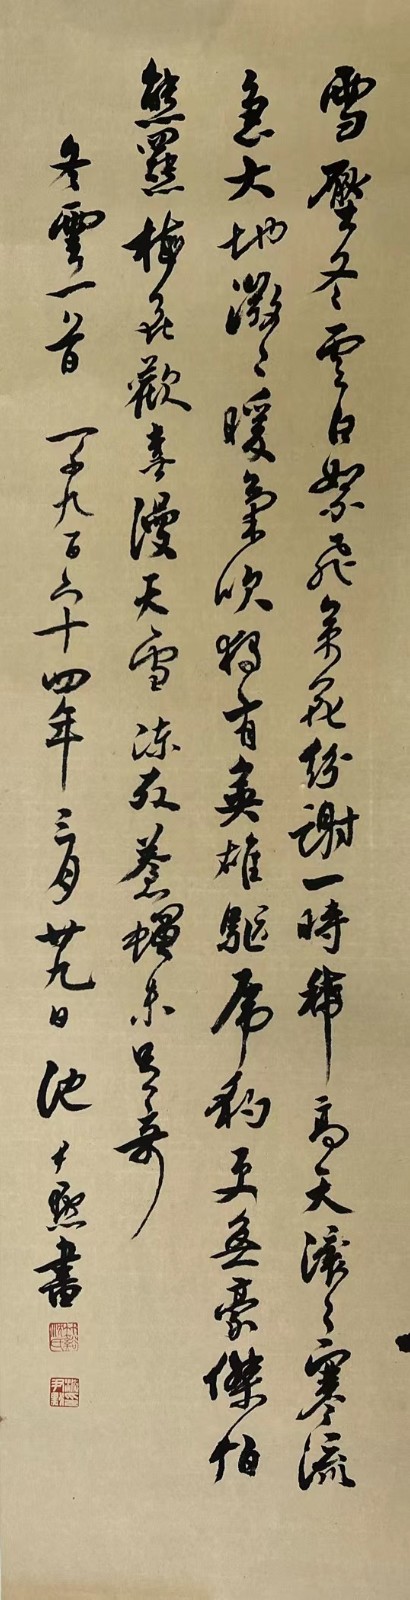 雪壓冬雲白絮飛萬花紛謝一時稀高天滾〻寒流
急大地微〻暖氣吹獨有英雄驅虎豹更無豪傑怕
熊羆梅花歡喜漫天雪凍死蒼蠅未足奇
冬雲一首 一千九百六十四年三月廿九日 沈尹默書